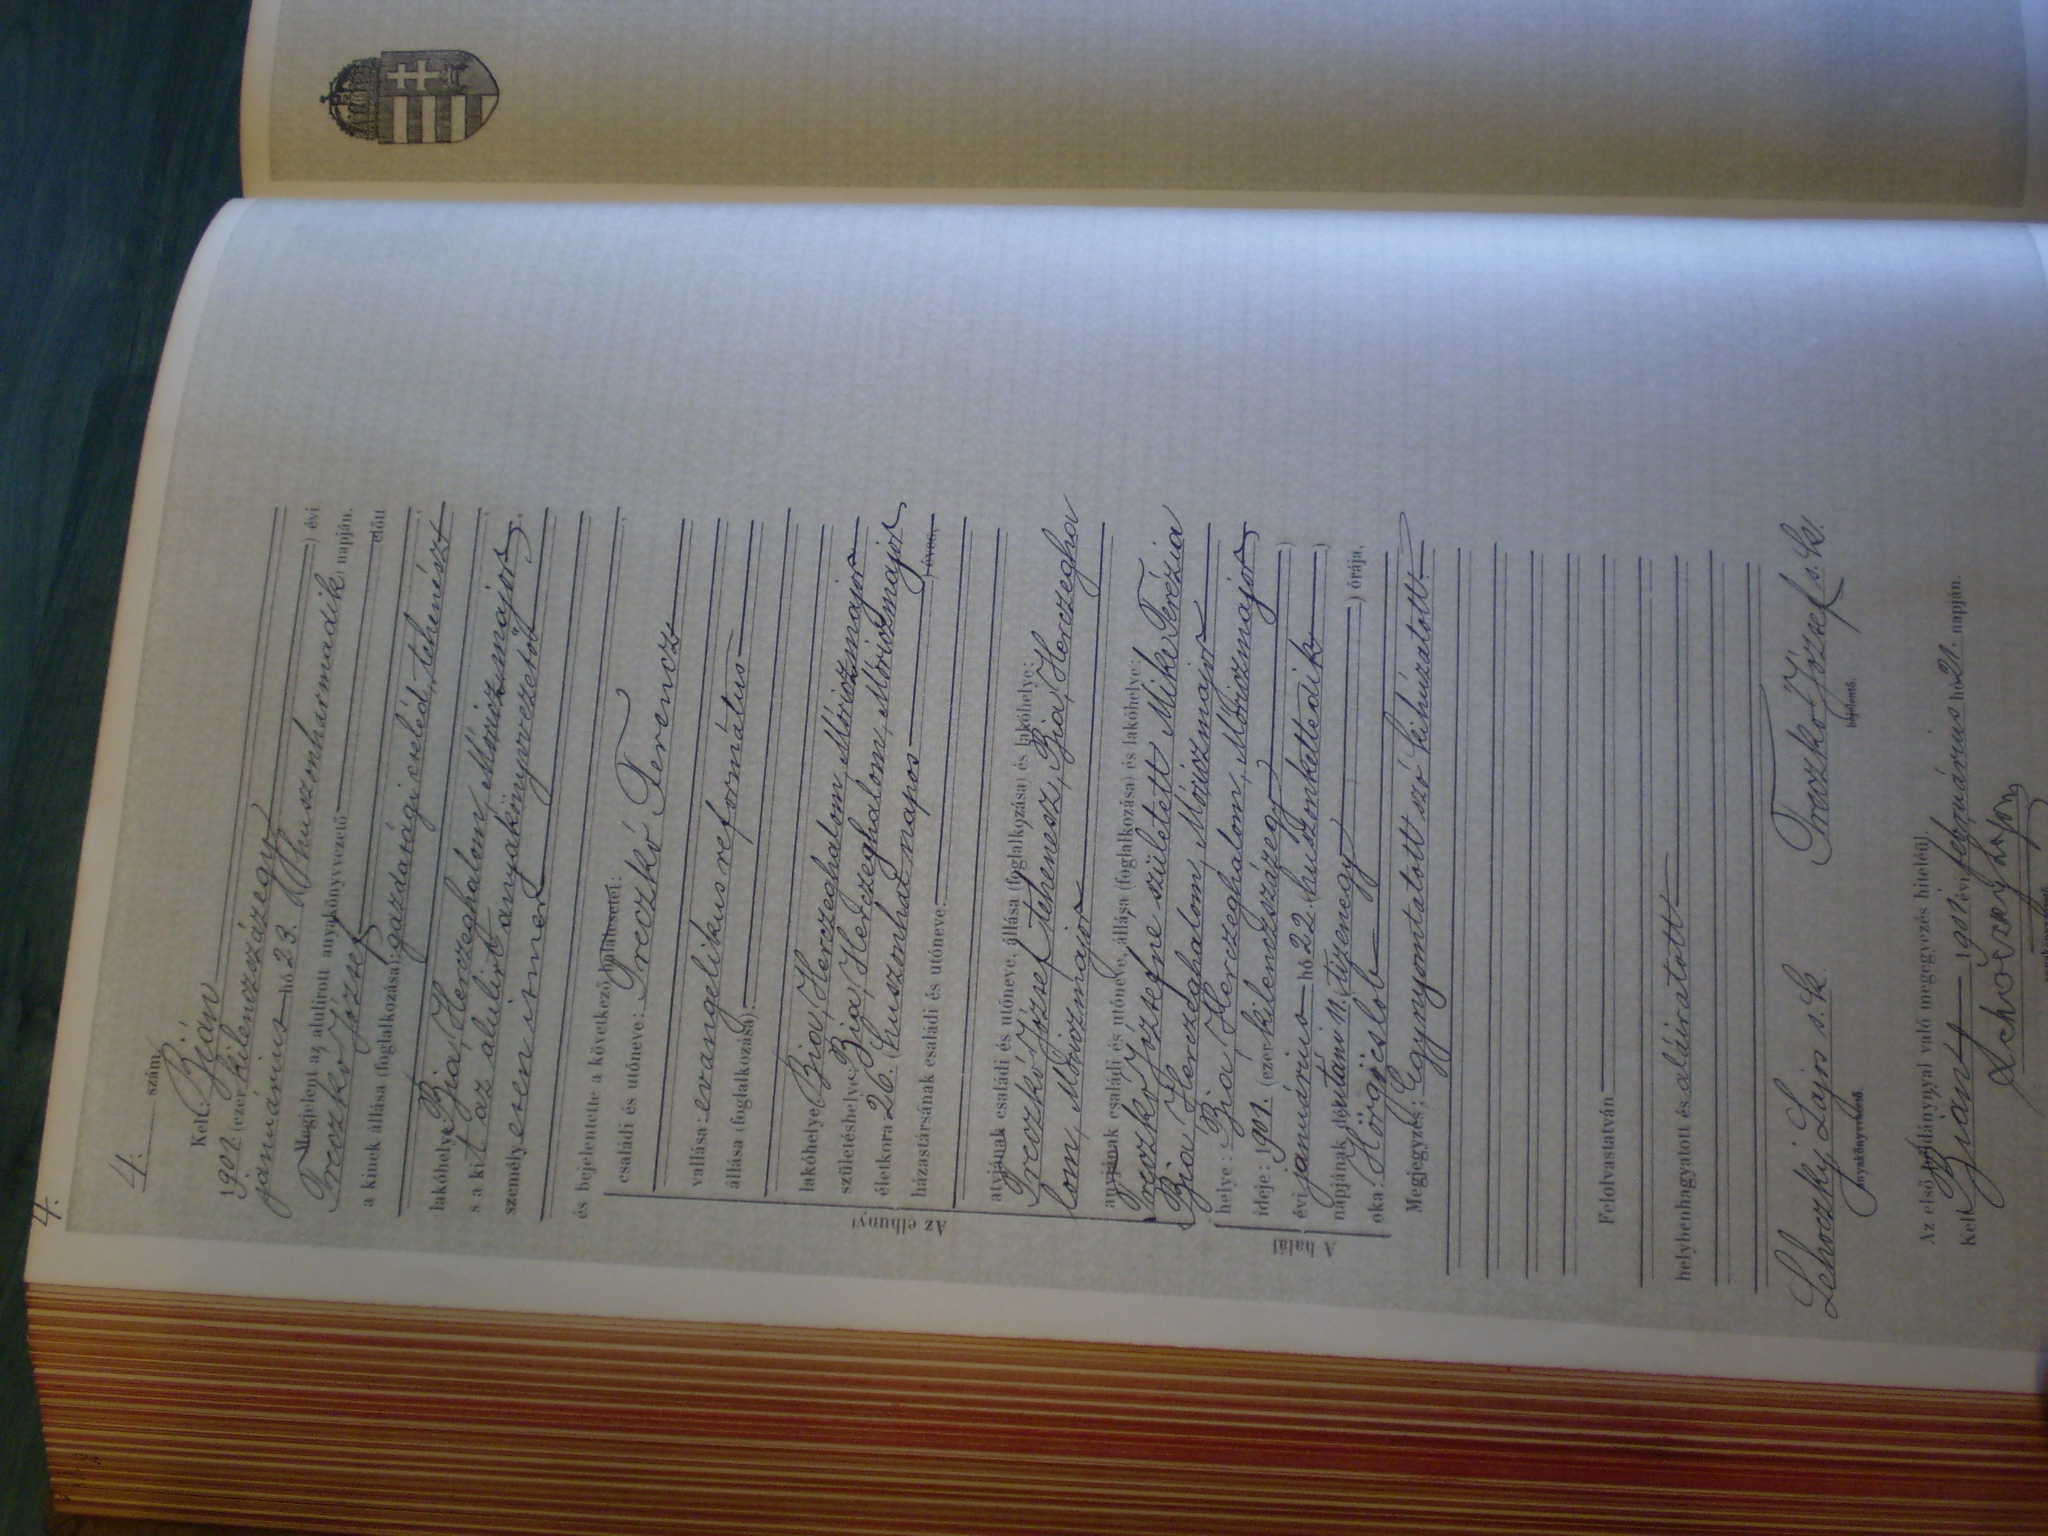 4.
4. szám
Kelt Bián
1901. (ezer kilenczszázegy) évi
január hó 23. (huszonharmadik) napján.
Megjelent az alulirott anyakönyvvezető előtt
Preczkó József
a kinek állása (foglalkozása): gazdasági cseléd, tehenész
lakóhelye Bia, Herczeghalom, Móriczmajor,
s a kit az alulirt anyakönyvvezető
személyesen ismer
és bejelentette a következő halálesetet:
családi és utóneve: Preczkó Ferencz
vallása: evangelikus református
állása (foglalkozása):
lakóhelye Bia, Herczeghalom, Móriczmajor
születéshelye Bia, Herczeghalom, Móriczmajor
életkora 26. huszonhat napos éves,
házastársának családi és utóneve:
Az elhunyt
atyjának családi és utóneve, állása (foglalkozása) és lakóhelye:
Preczkó József tehenesz, Bia, Herczegha
lom, Móriczmajor
anyjának családi és utóneve, állása (foglalkozása) és lakóhelye:
Preczkó Józsefné született Mike Terézia
Bia Herczeghalom, Móriczmajor
helye: Bia, Herczeghalom, Móriczmajor
ideje: 1901. (ezer kilenczszázegy)
évi január hó 22. (huszonkettedik)
napjának délutáni 11. (tizenegy) órája.
oka: Hörgcslob
A halál
Megjegyzés: Egy nyomtatott szó kihúzatott.
Felolvastatván
helybenhagyatott és aláiratott
Lehoczky Lajos s. k.
anyakönyvvezető.
Preczkó József s. k.
bejelentő.
Az első példánynyal való megegyezés hiteléül.
Kelt Bián 1901 évi február hó 21. napján.
Lehoczky Lajos